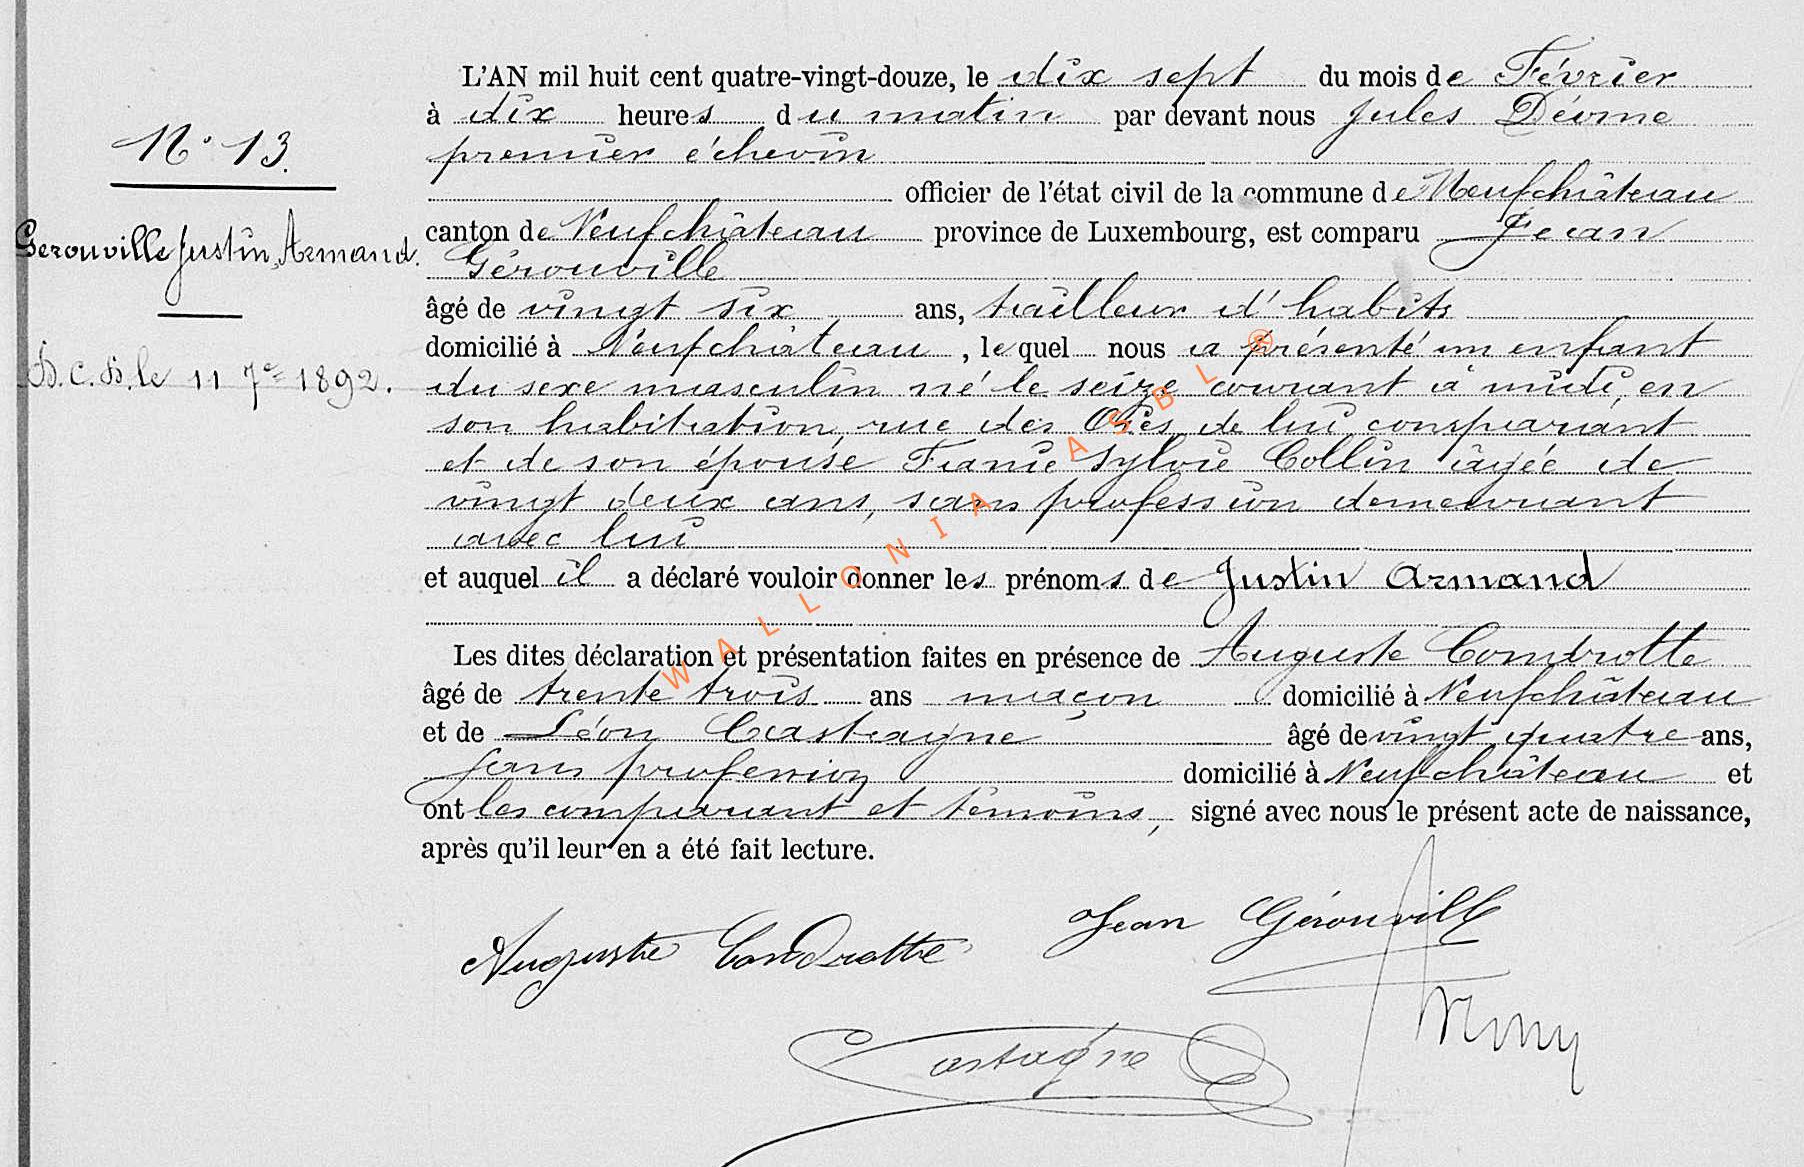 L'AN mil huit cent quatre-vingt-douze, le dix sept du mois de Février
à dix heures du matin par devant nous Jules
premier échevin
officier de l'état civil de la commune de Neufchâteau
canton de Neufchâteau province de Luxembourg, est comparu Jean
Gérouville
âgé de vingt six ans, tailleur d'habits
domicilié à Neufchâteau, lequel nous a présenté un enfant
du sexe masculin né le seize courant à midi, en
son habitation, rue des de lui comparant
et de son épouse Sylvie Collin âgée de
vingt deux ans, sans profession demeurant
avec lui
et auquel il a déclaré vouloir donner les prénoms de Justin Armand
Les dites déclaration et présentation faites en présence de Auguste Condrotte
âgé de trente trois ans maçon domicilié à Neufchâteau
et de Léon Castaigne âgé de vingt quatre ans,
sans profession domicilié à Neufchâteau et
ont les comparant et témoins, signé avec nous le présent acte de naissance,
après qu'il leur en a été fait lecture.
N° 13.
Gerouville Justin, Armand.
D.C.D. le 11 7re 1892.
Jean Gérouville
Auguste Condrotte
Castagne
WALLONIA ASBL ®